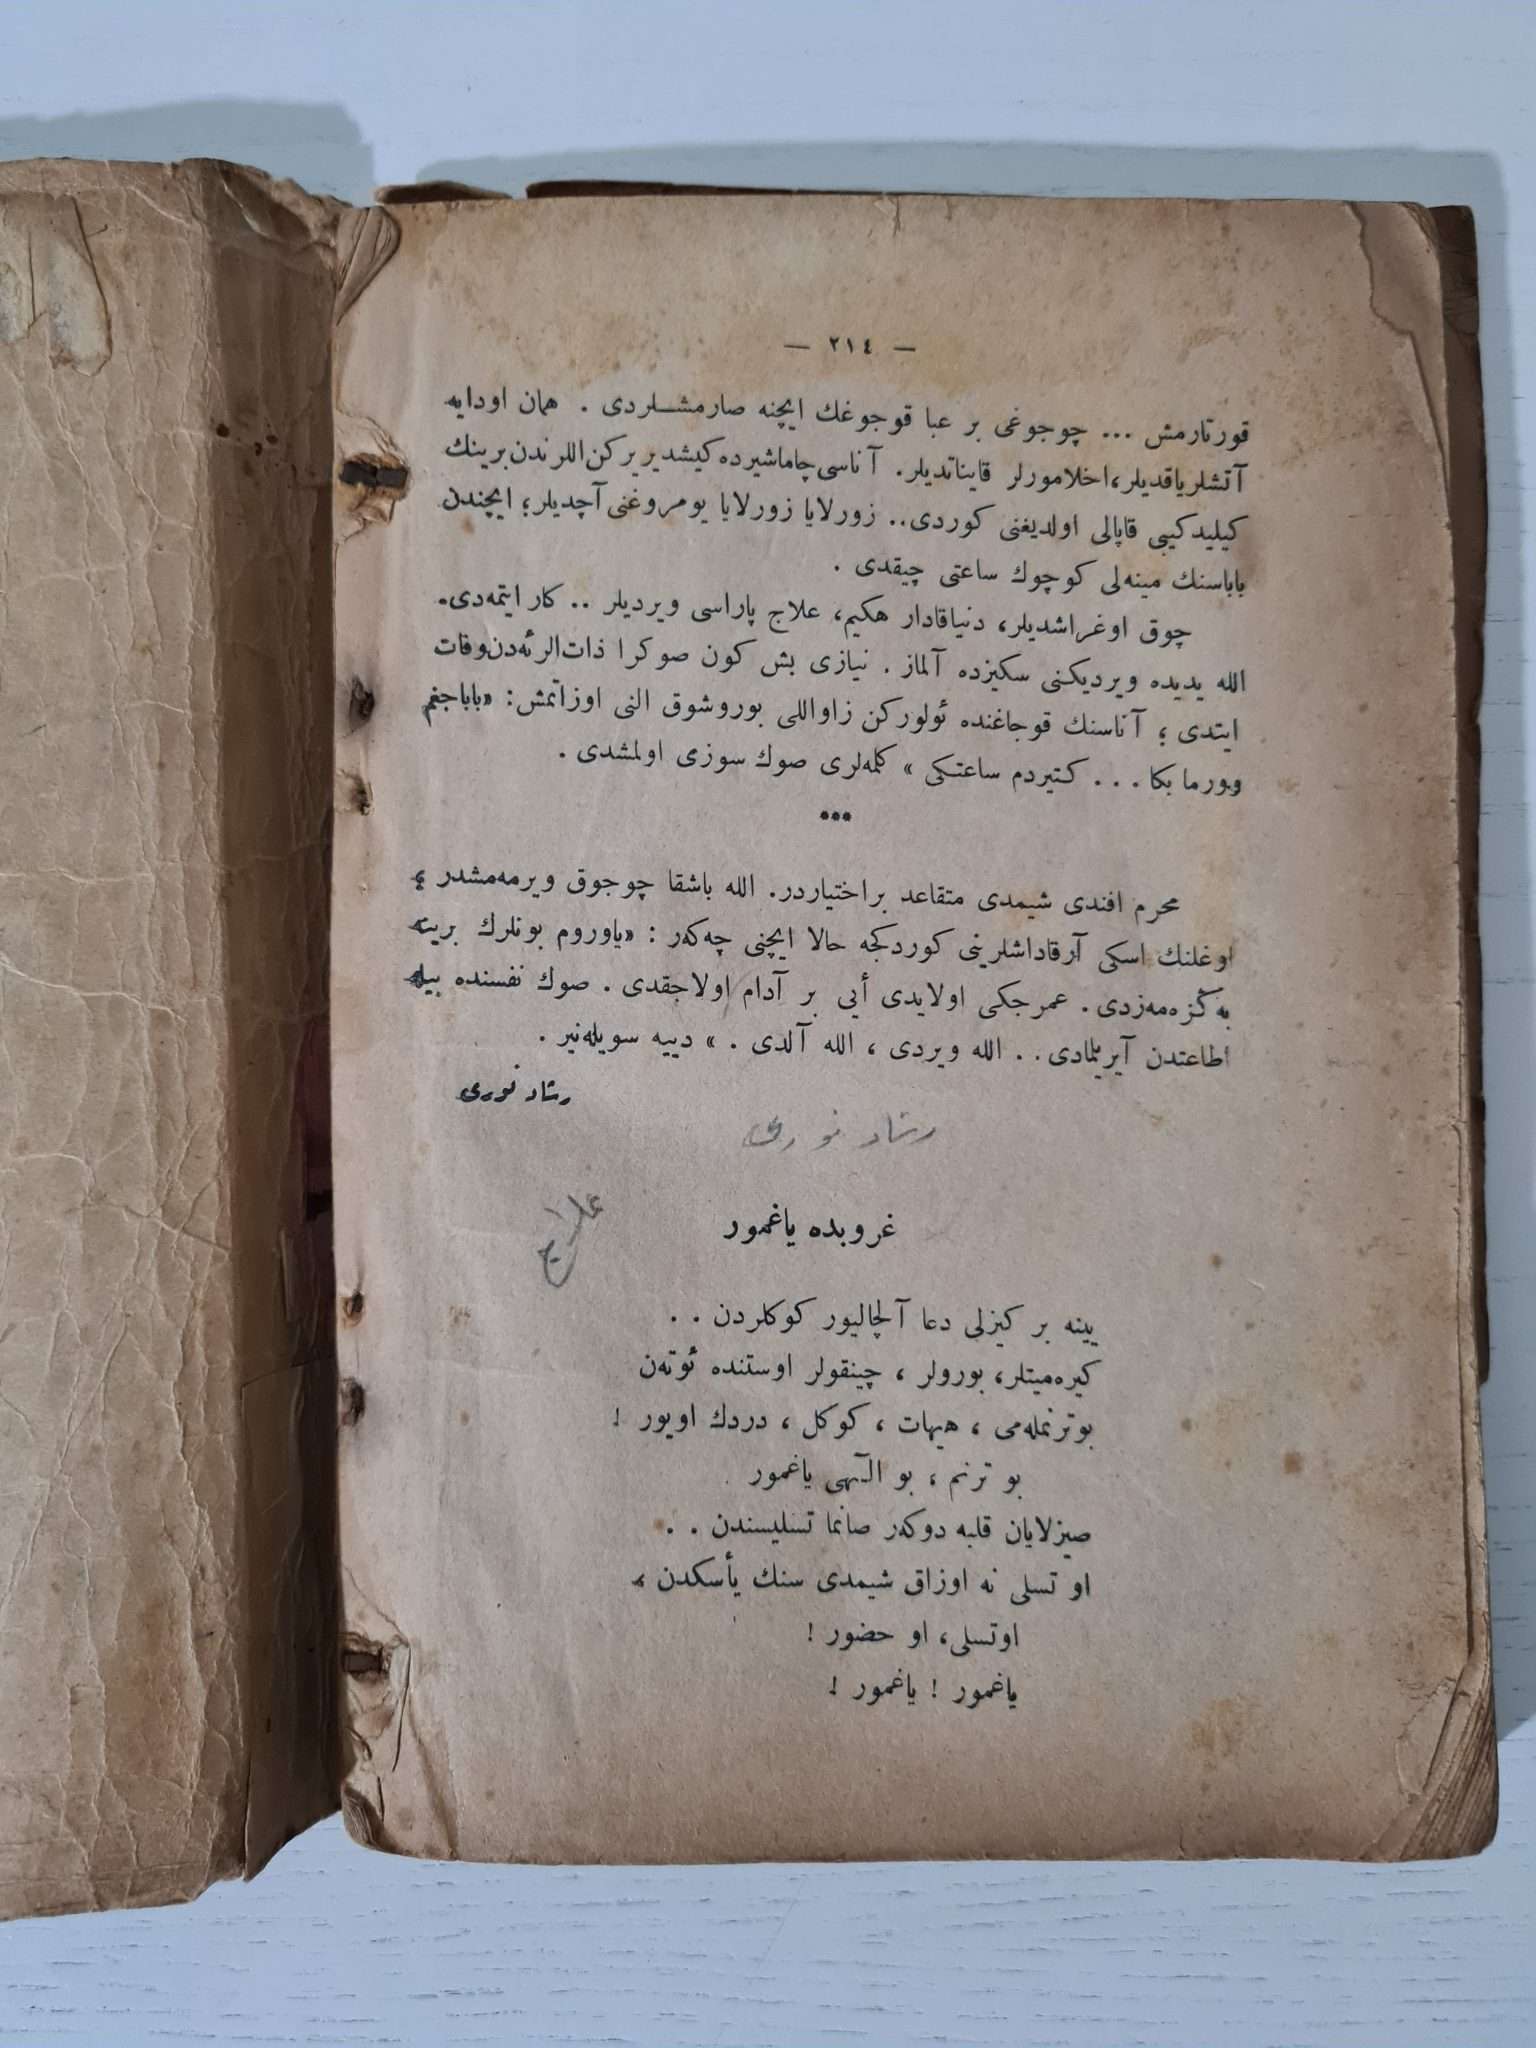 — ٢١٤ —
قورتارمش ... چوجوغی بر عبا قوجوغك ایچنه صارمشلردی . همان اودایه
آتشلر یاقدیلر، اخلامورلر قایناتدیلر. آناسی چاماشیرده كیشدیریركن اللرندن برینك
كیلید كیبی قاپالی اولدیغنی كوردی.. زورلایا زورلایا یومروغنی آچدیلر؛ ایچندن
باباسنك مینه‌لی كوچوك ساعتی چیقدی .
چوق اوغراشدیلر، دنیا قادار هكیم، علاج پاراسی ویردیلر .. كار ایتمه‌دی.
الله یدیده ویردیكنی سكیزده آلماز . نیازی بش كون صوكرا ذات‌الرئه‌دن وفات
ایتدی ؛ آناسنك قوجاغنده ئولوركن زاواللی بوروشوق النی اوزاتمش: «باباجغم
وورما بكا . . . كتیردم ساعتكی » كلمه‌لری صوك سوزی اولمشدی .
***
محرم افندی شیمدی متقاعد بر اختیاردر. الله باشقا چوجوق ویرمه‌مشدر ؛
اوغلنك اسكی آرقاداشلرینی كوردكجه حالا ایچنی چه‌كه‌ر : «یاوروم بونلرك برینه
به‌كزه‌مه‌زدی . عمرجكی اولایدی أیی بر آدام اولاجقدی . صوك نفسنده بیله
اطاعتدن آیریلمادی . . الله ویردی ، الله آلدی . » دییه سویله‌نیر .
رشاد نوری
رشاد نوری
غروبده یاغمور
علاج
یینه بر كیزلی دعا آلچالیور كوكلردن . .
كیره‌میتلر، بورولر ، چینقولر اوستنده ئوته‌ن
بو ترنمله‌می ، هیهات ، كوكل ، دردك اویور !
بو ترنم ، بو الٓهی یاغمور
صیزلایان قلبه دوكه‌ر صانما تسلیسندن . .
او تسلی نه اوزاق شیمدی سنك یأسكدن ،
او تسلی، او حضور !
یاغمور ! یاغمور !